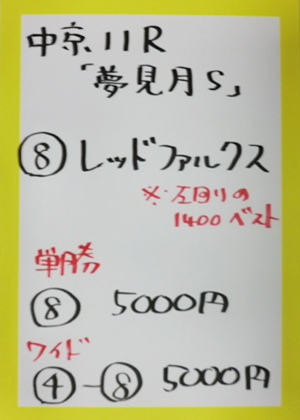 中京11R
「夢見月S」
⑧レッドファルクス
※左回りの
1400ベスト
単勝
⑧ 5000円
ワイド
④-⑧ 5000円